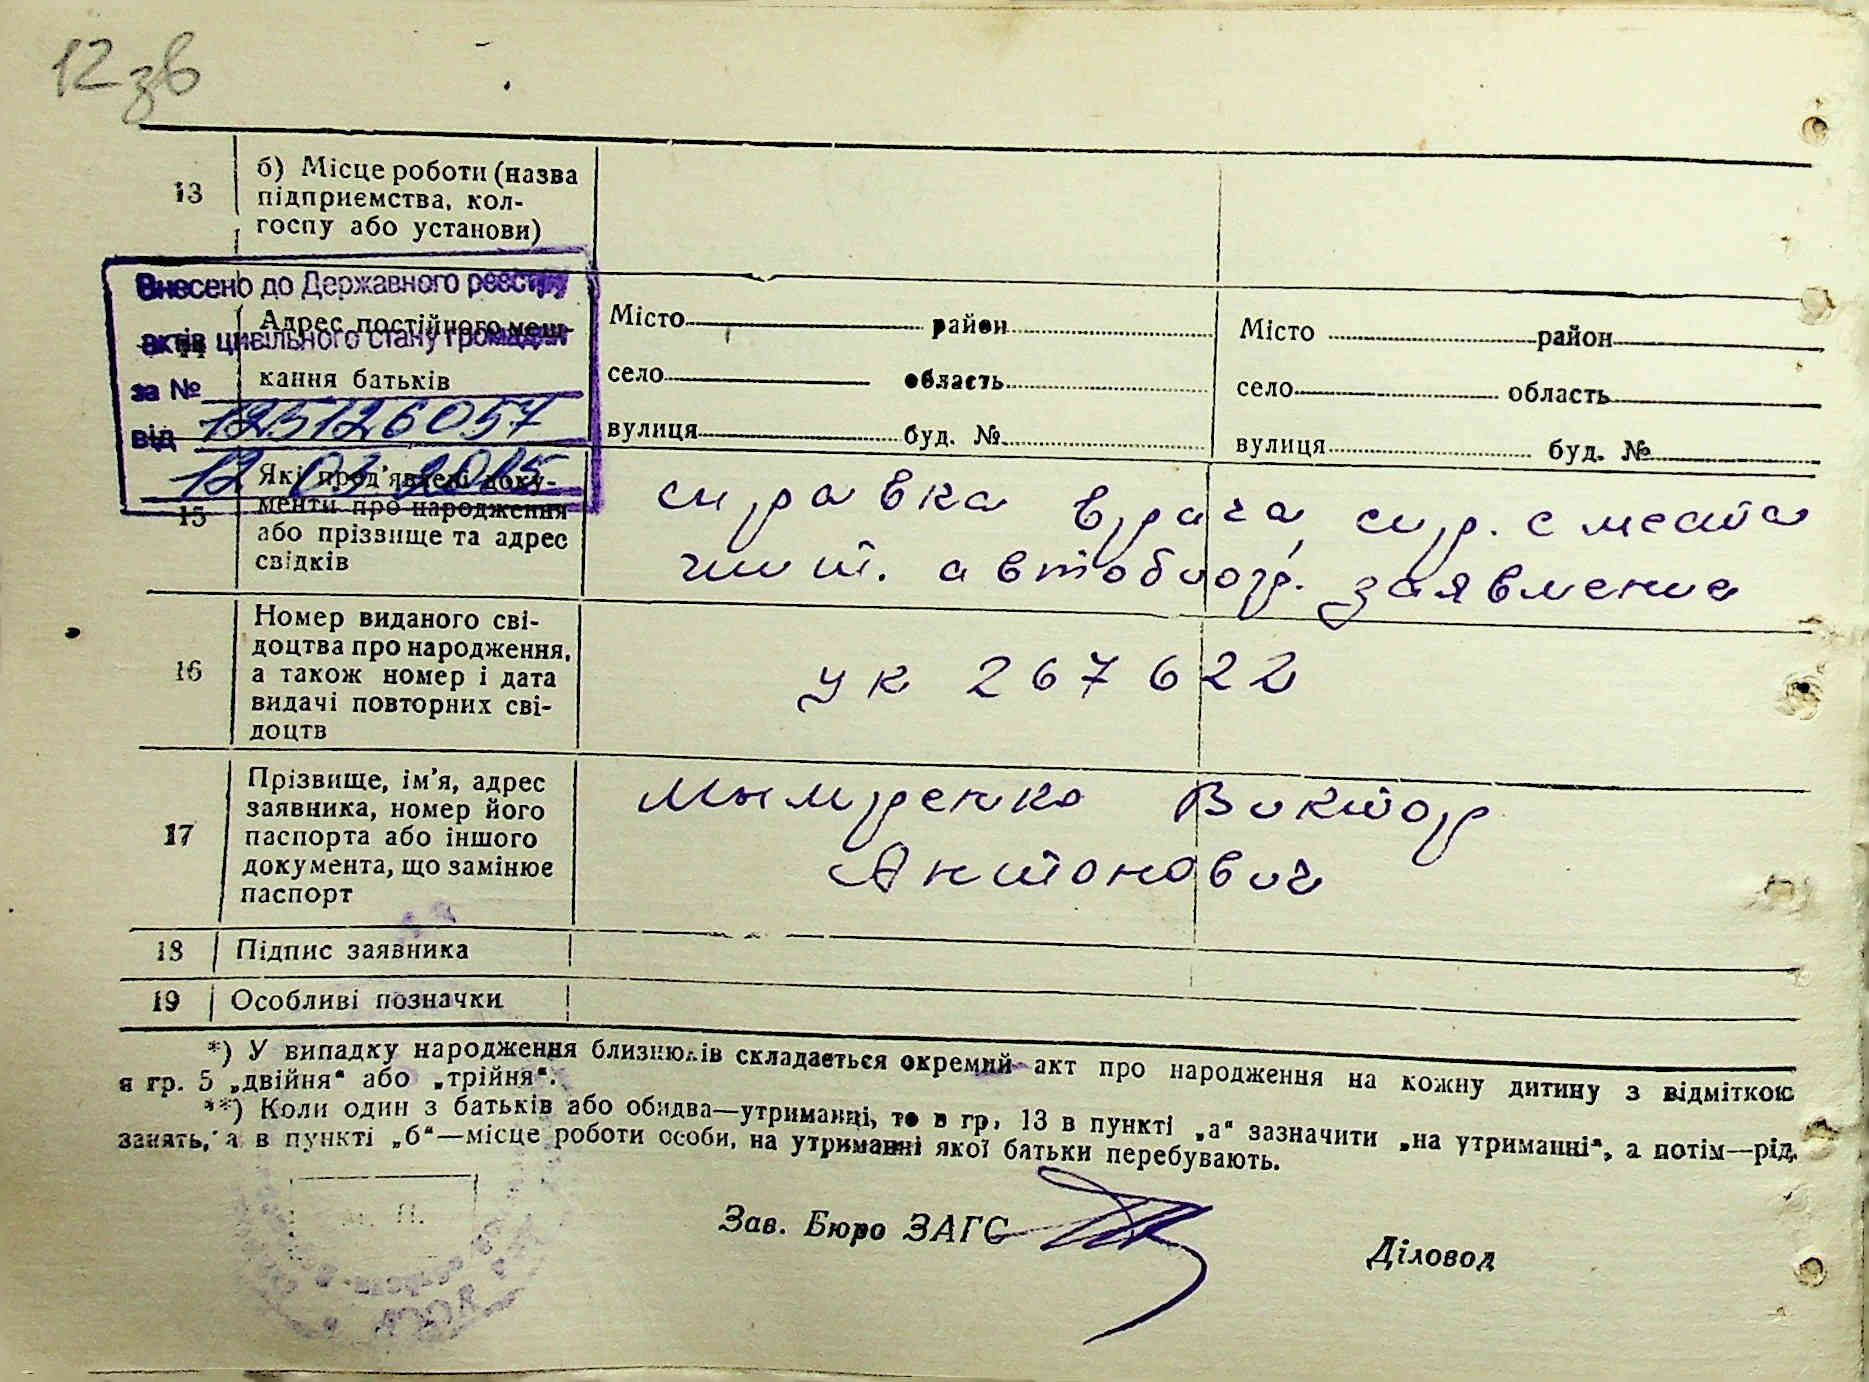 12 зв
13 б) Місце роботи (назва
підприємства, кол-
госпу або установи)
Внесено до Державного реєстру
актів цивільного стану громадян
за № 125126057
від 12 03 2015
14 Адрес постійного меш-
кання батьків
Місто район Місто район
село область село область
вулиця буд. № вулиця буд. №
15 Які пред'явлені доку-
менти про народження
або прізвище та адрес
свідків
справка врача, спр. с места
жит. автобиогр. заявление
16 Номер виданого сві-
доцтва про народження,
а також номер і дата
видачі повторних сві-
доцтв
ук 267622
17 Прізвище, ім'я, адрес
заявника, номер його
паспорта або іншого
документа, що замінює
паспорт
Мымренко Виктор
Антонович
18 Підпис заявника
19 Особливі позначки
*) У випадку народження близнюків складається окремий акт про народження на кожну дитину з відміткою
в гр. 5 „двійня“ або „трійня“.
**) Коли один з батьків або обидва—утриманці, то в гр. 13 в пункті „а“ зазначити „на утриманні“, а потім—рід
занять, а в пункті „б“—місце роботи особи, на утриманні якої батьки перебувають.
М. П.
Зав. Бюро ЗАГС Діловод